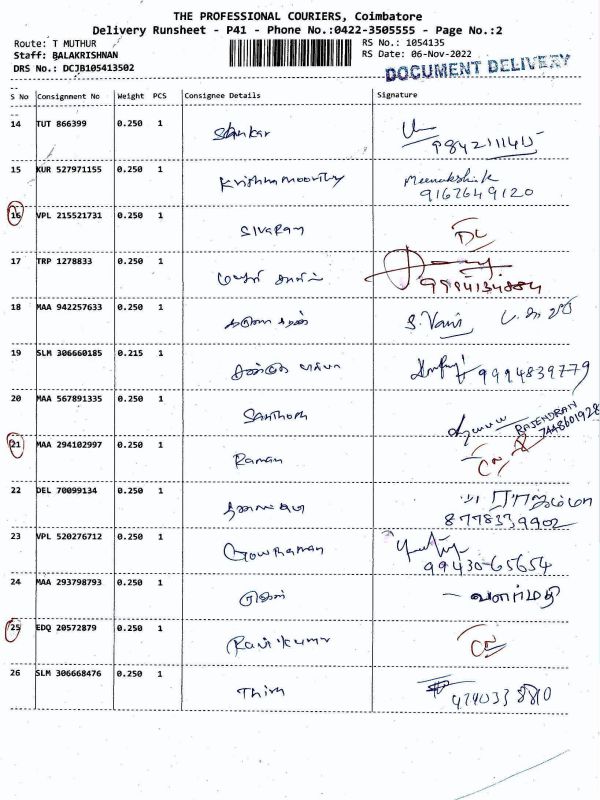 THE PROFESSIONAL COURIERS, Coimbatore
Delivery Runsheet - P41 - Phone No.:0422-3505555 - Page No.:2
Route: T MUTHUR RS No.: 1054135
Staff: BALAKRISHNAN RS Date: 06-Nov-2022
DRS No.: DCJB105413502 DOCUMENT DELIVERY
S No Consignment No Weight PCS Consignee Details Signature
14 TUT 866399 0.250 1 Shankar
15 KUR 527971155 0.250 1 Krishnamoorthy Meenakshi
9167649120
16 VPL 215521731 0.250 1 SIVARAM DL
17 TRP 1278833 0.250 1
9994134884
18 MAA 942257633 0.250 1 S. Vani
19 SLM 306660185 0.215 1 9994839779
20 MAA 567891335 0.250 1 SANTHOSH RAJENDRAN
21 MAA 294102997 0.250 1 Raman
22 DEL 70099134 0.250 1 ராஜம்மா
8778339902
23 VPL 520276712 0.250 1 Gowraman
99430-65654
24 MAA 293798793 0.250 1 வளர்மதி
25 EDQ 20572879 0.250 1 Ravikumar
26 SLM 306668476 0.250 1